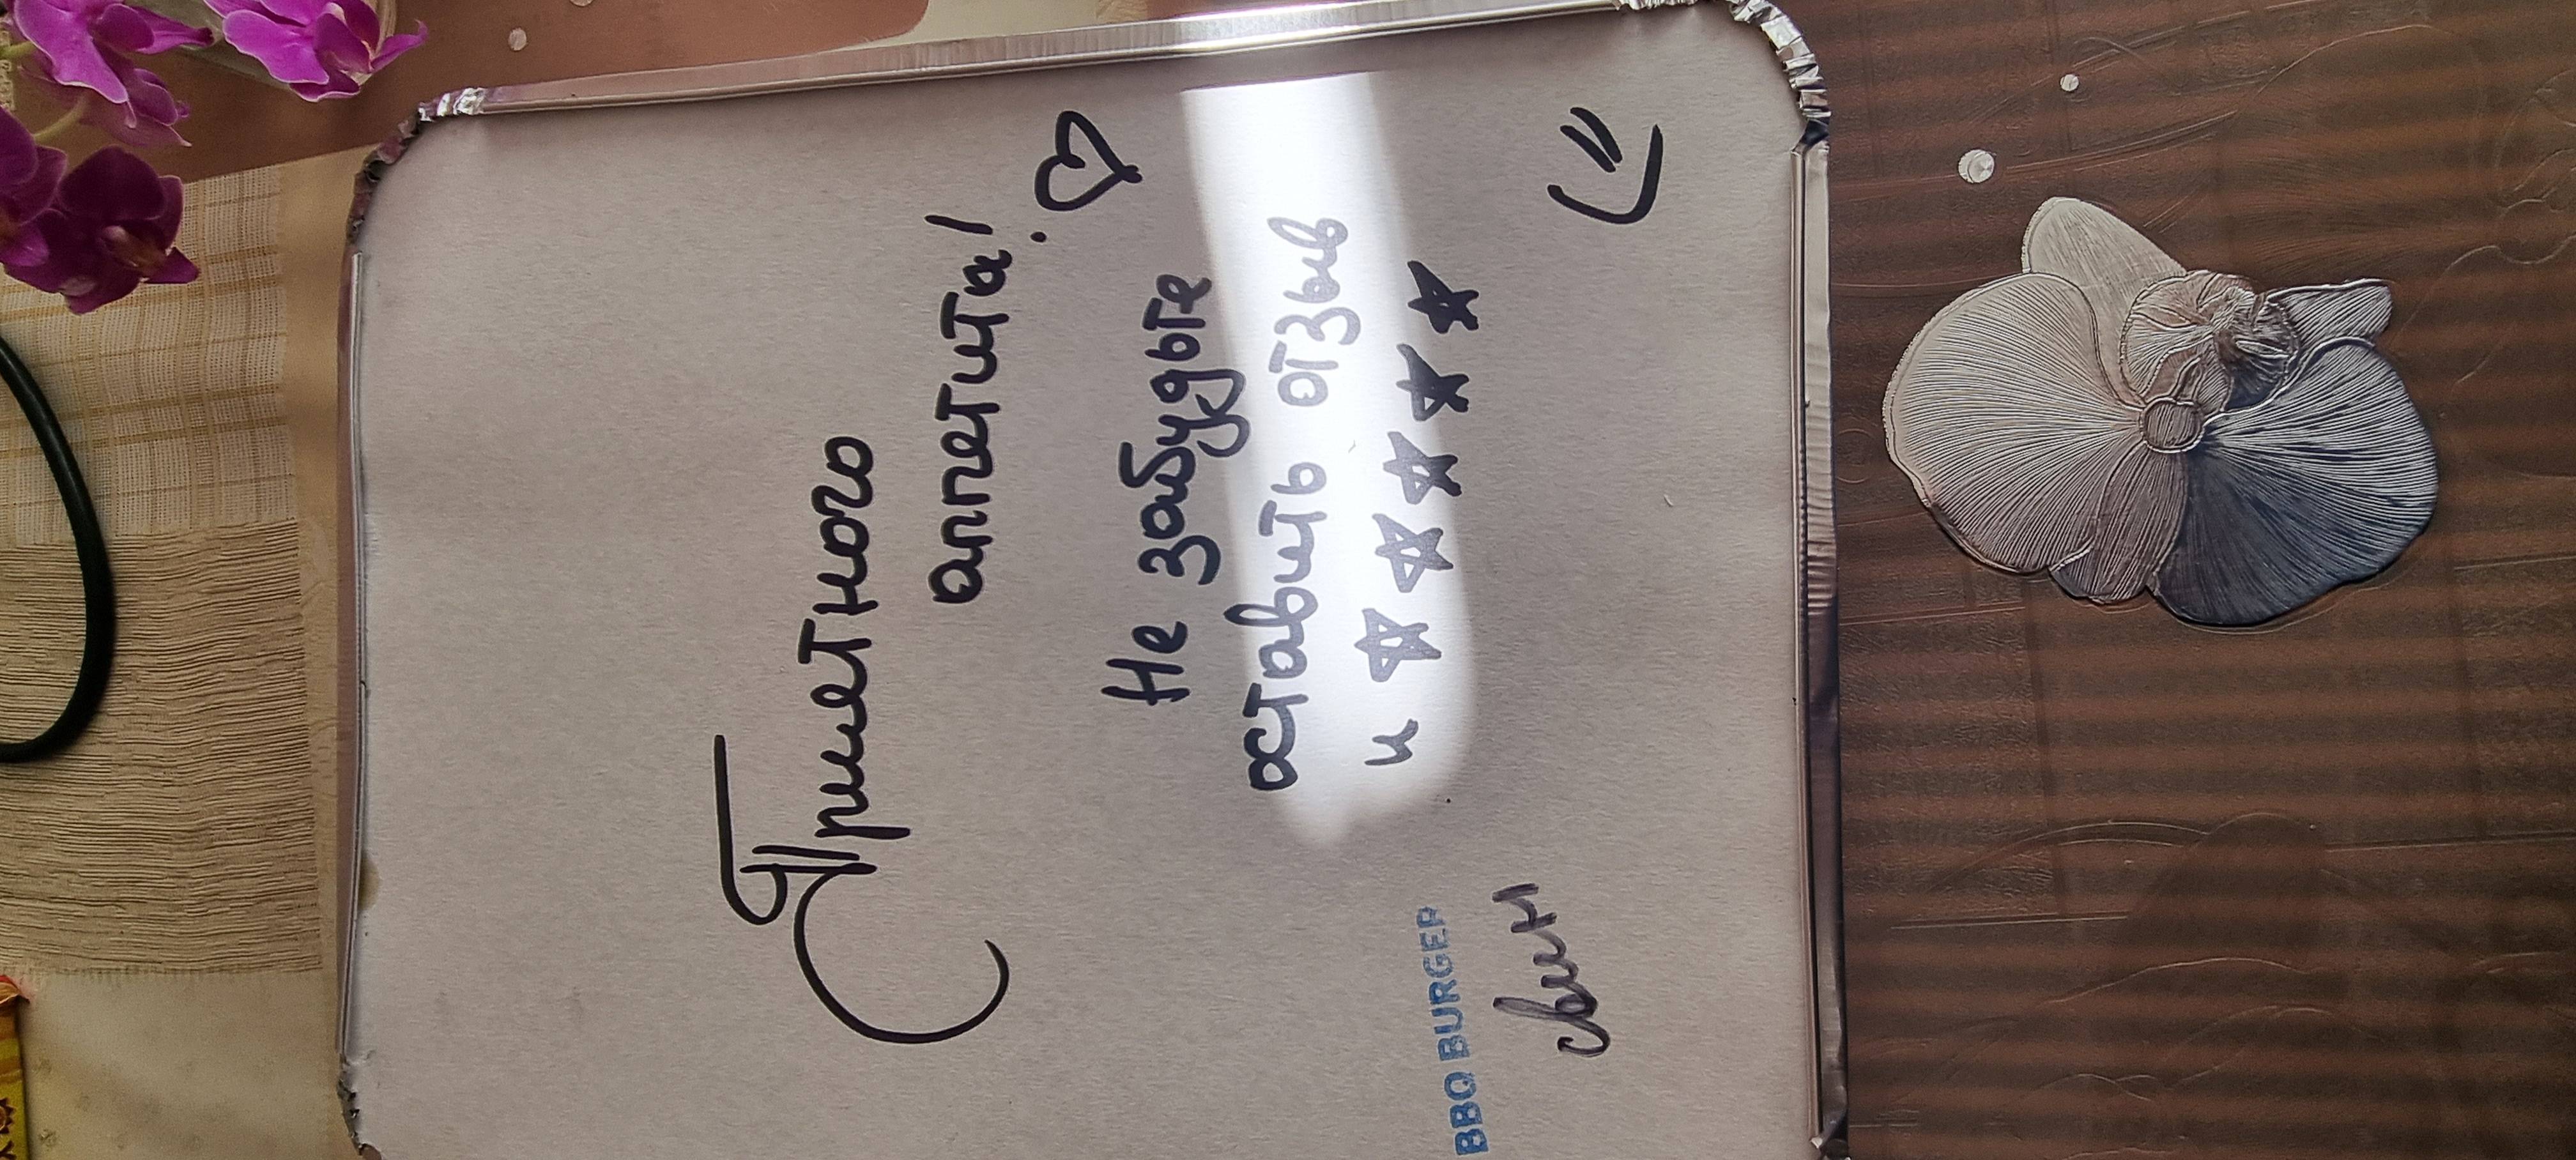 Приетного
аппетита!
Не забудьте
оставить отзыв
и
BBQ BURGER
свин